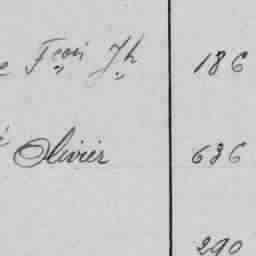 Fcois Jh 186
Olivier 636
290